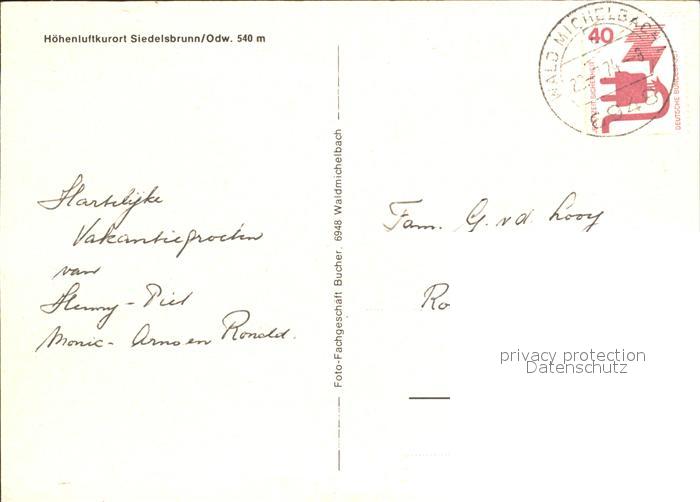 Höhenluftkurort Siedelsbrunn/Odw. 540 m
WALD MICHELBACH
6948
40
DEUTSCHE BUNDESPOST
Hartelijke
Vakantiegroeten
van
Henny - Piet
Monic - Arno en Ronald.
Foto-Fachgeschäft Bucher, 6948 Waldmichelbach
Fam. G. v d. Looy
Ro
privacy protection
Datenschutz